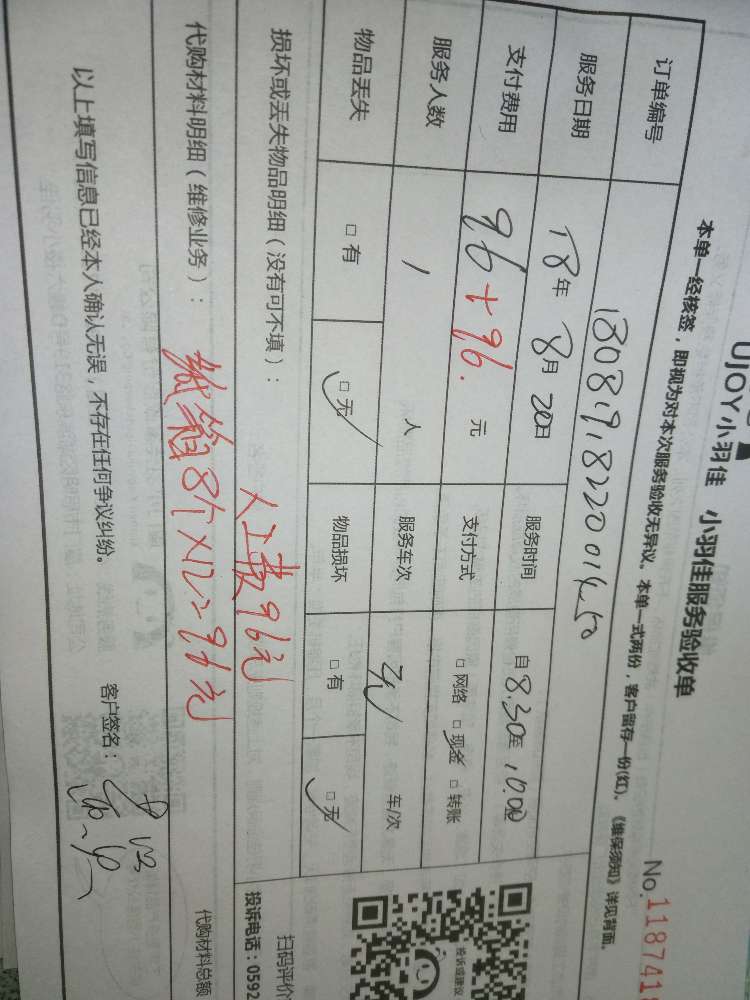 UJOY小羽佳 小羽佳服务验收单
No.118741
本单一经核签，即视为对本次服务验收无异议。本单一式两份，客户留存一份(红)、《维保须知》详见背面。
订单编号 1808191822001450
服务日期 18年 8月 20日 服务时间 自 8.30至 10.00
支付费用 96+96. 元 支付方式 □网络 □现金 □转账
服务人数 1 人 服务车次 车/次
物品丢失 □有 □无 物品损坏 □有 □无
损坏或丢失物品明细（没有可不填）：
人工费96元
代购材料明细（维修业务）：
纸箱8个×12=96元
代购材料总额
以上填写信息已经本人确认无误，不存在任何争议纠纷。 客户签名：
投诉或建议
扫码评价
投诉电话：0592